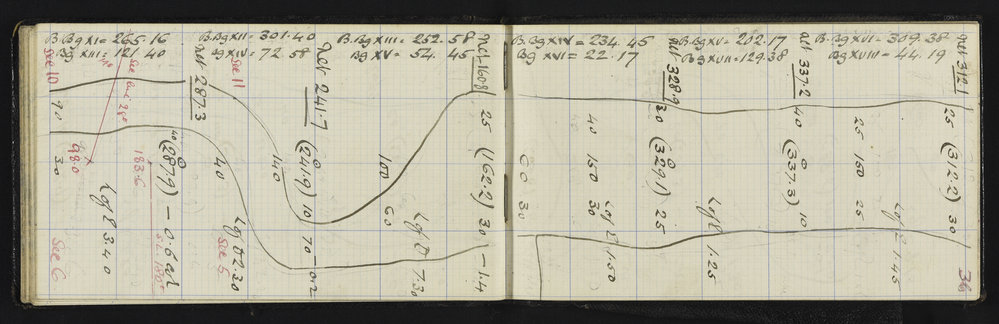 B.Bg XI = 265.16
Bg XIII = 121.40
B.Bg XII = 301.40
Bg XIV = 72.58
B.Bg XIII = 252.58
Bg XV = 54.45
B.Bg XIV = 234.45
Bg XVI = 22.17
B.Bg XV = 202.17
Bg XVII = 129.38
B.Bg XVI = 309.38
Bg XVIII = 44.19
See 10
See 11
act 287.3
act 241.7
act 160.8
act 328.9
act 337.2
act 312.1
90
30
98.0
183.6
40 (287.9) – 0.6
40
140
(241.9) 10
70 – 0.2
100
60
25 (162.2) 30 – 1.4
60 30
40 150 30
30 (329.1) 25
40 (337.3) 10
25 150 25
25 (312.2) 30
3.40
2.30
7.30
1.50
1.25
1.45
See 6
See 5
36